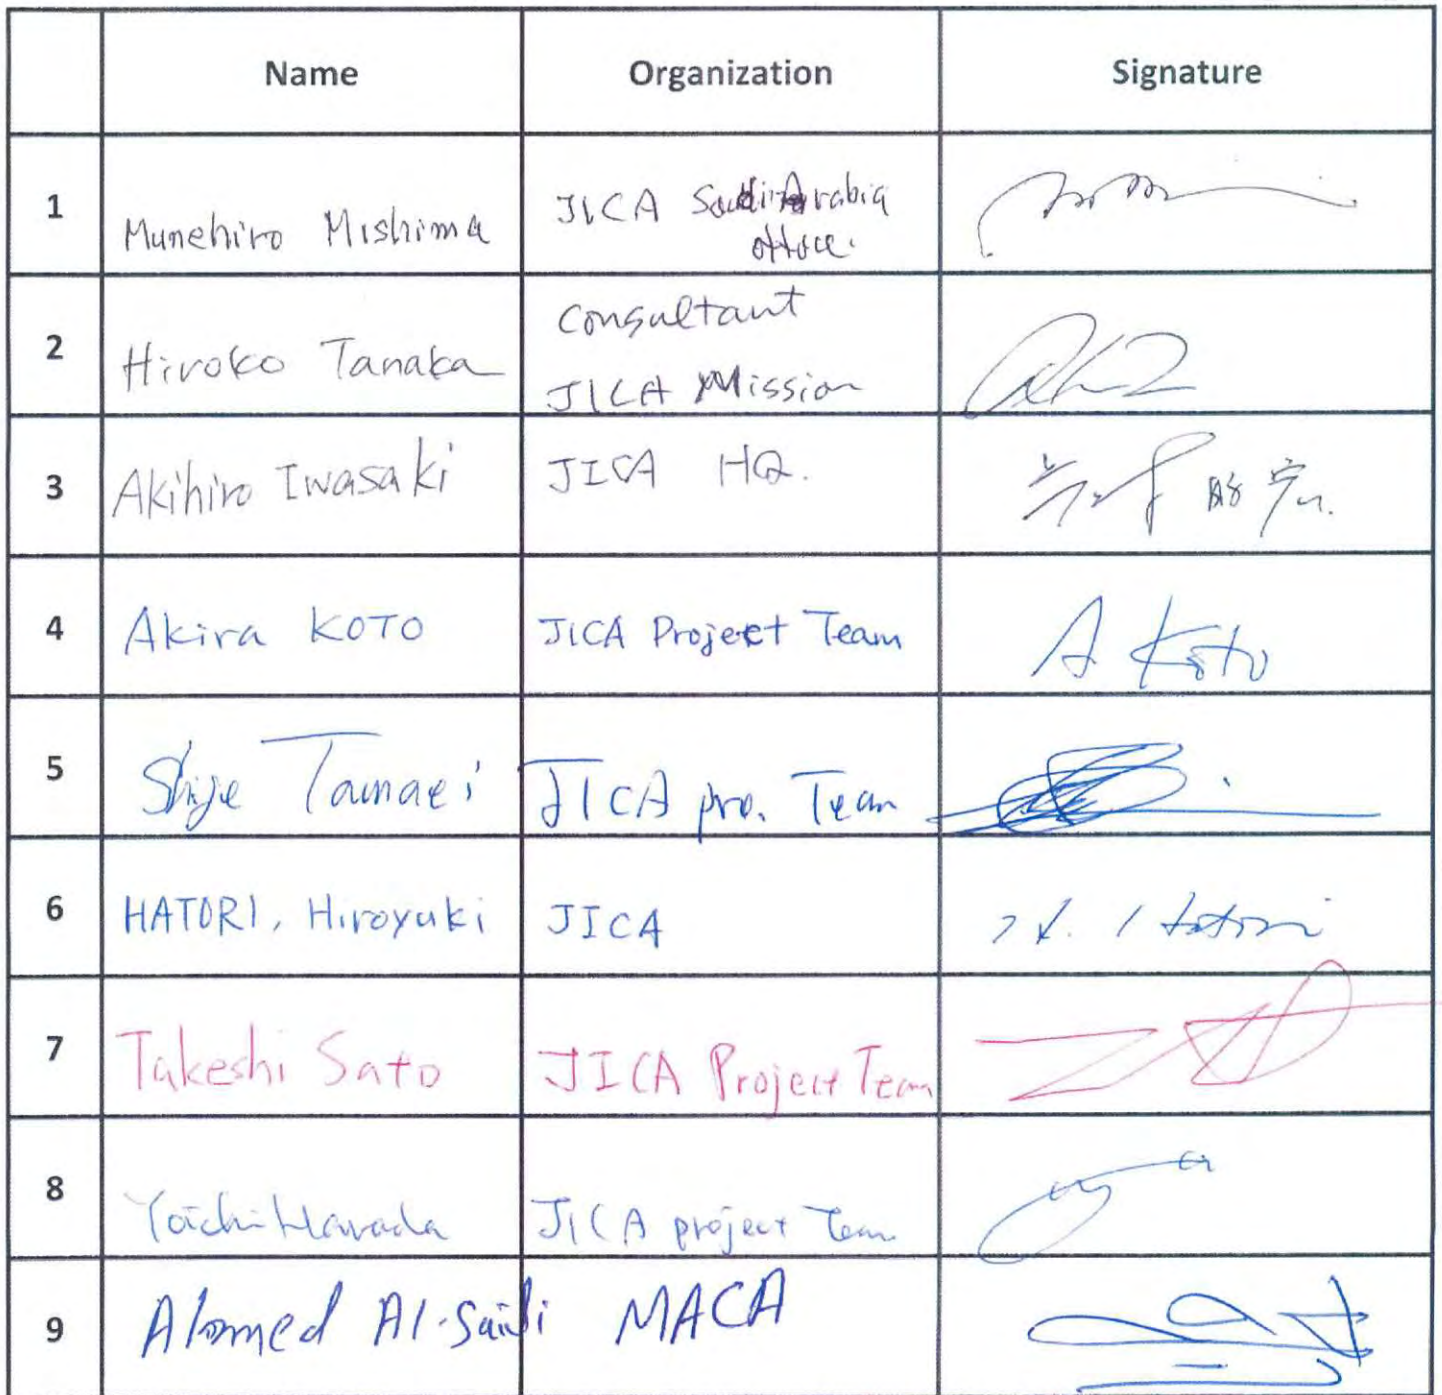 Name Organization Signature
1 Munehiro Mishima JICA Saudi Arabia
office.
2 Hiroko Tanaka Consultant
JICA Mission
3 Akihiro Iwasaki JICA HQ.
4 Akira KOTO JICA Project Team A Koto
5 Shige Tamaei JICA pro. Team
6 HATORI, Hiroyuki JICA H. Hatori
7 Takeshi Sato JICA Project Team
8 Yoichi Harada JICA project Team
9 Ahmed Al-Saidi MACA